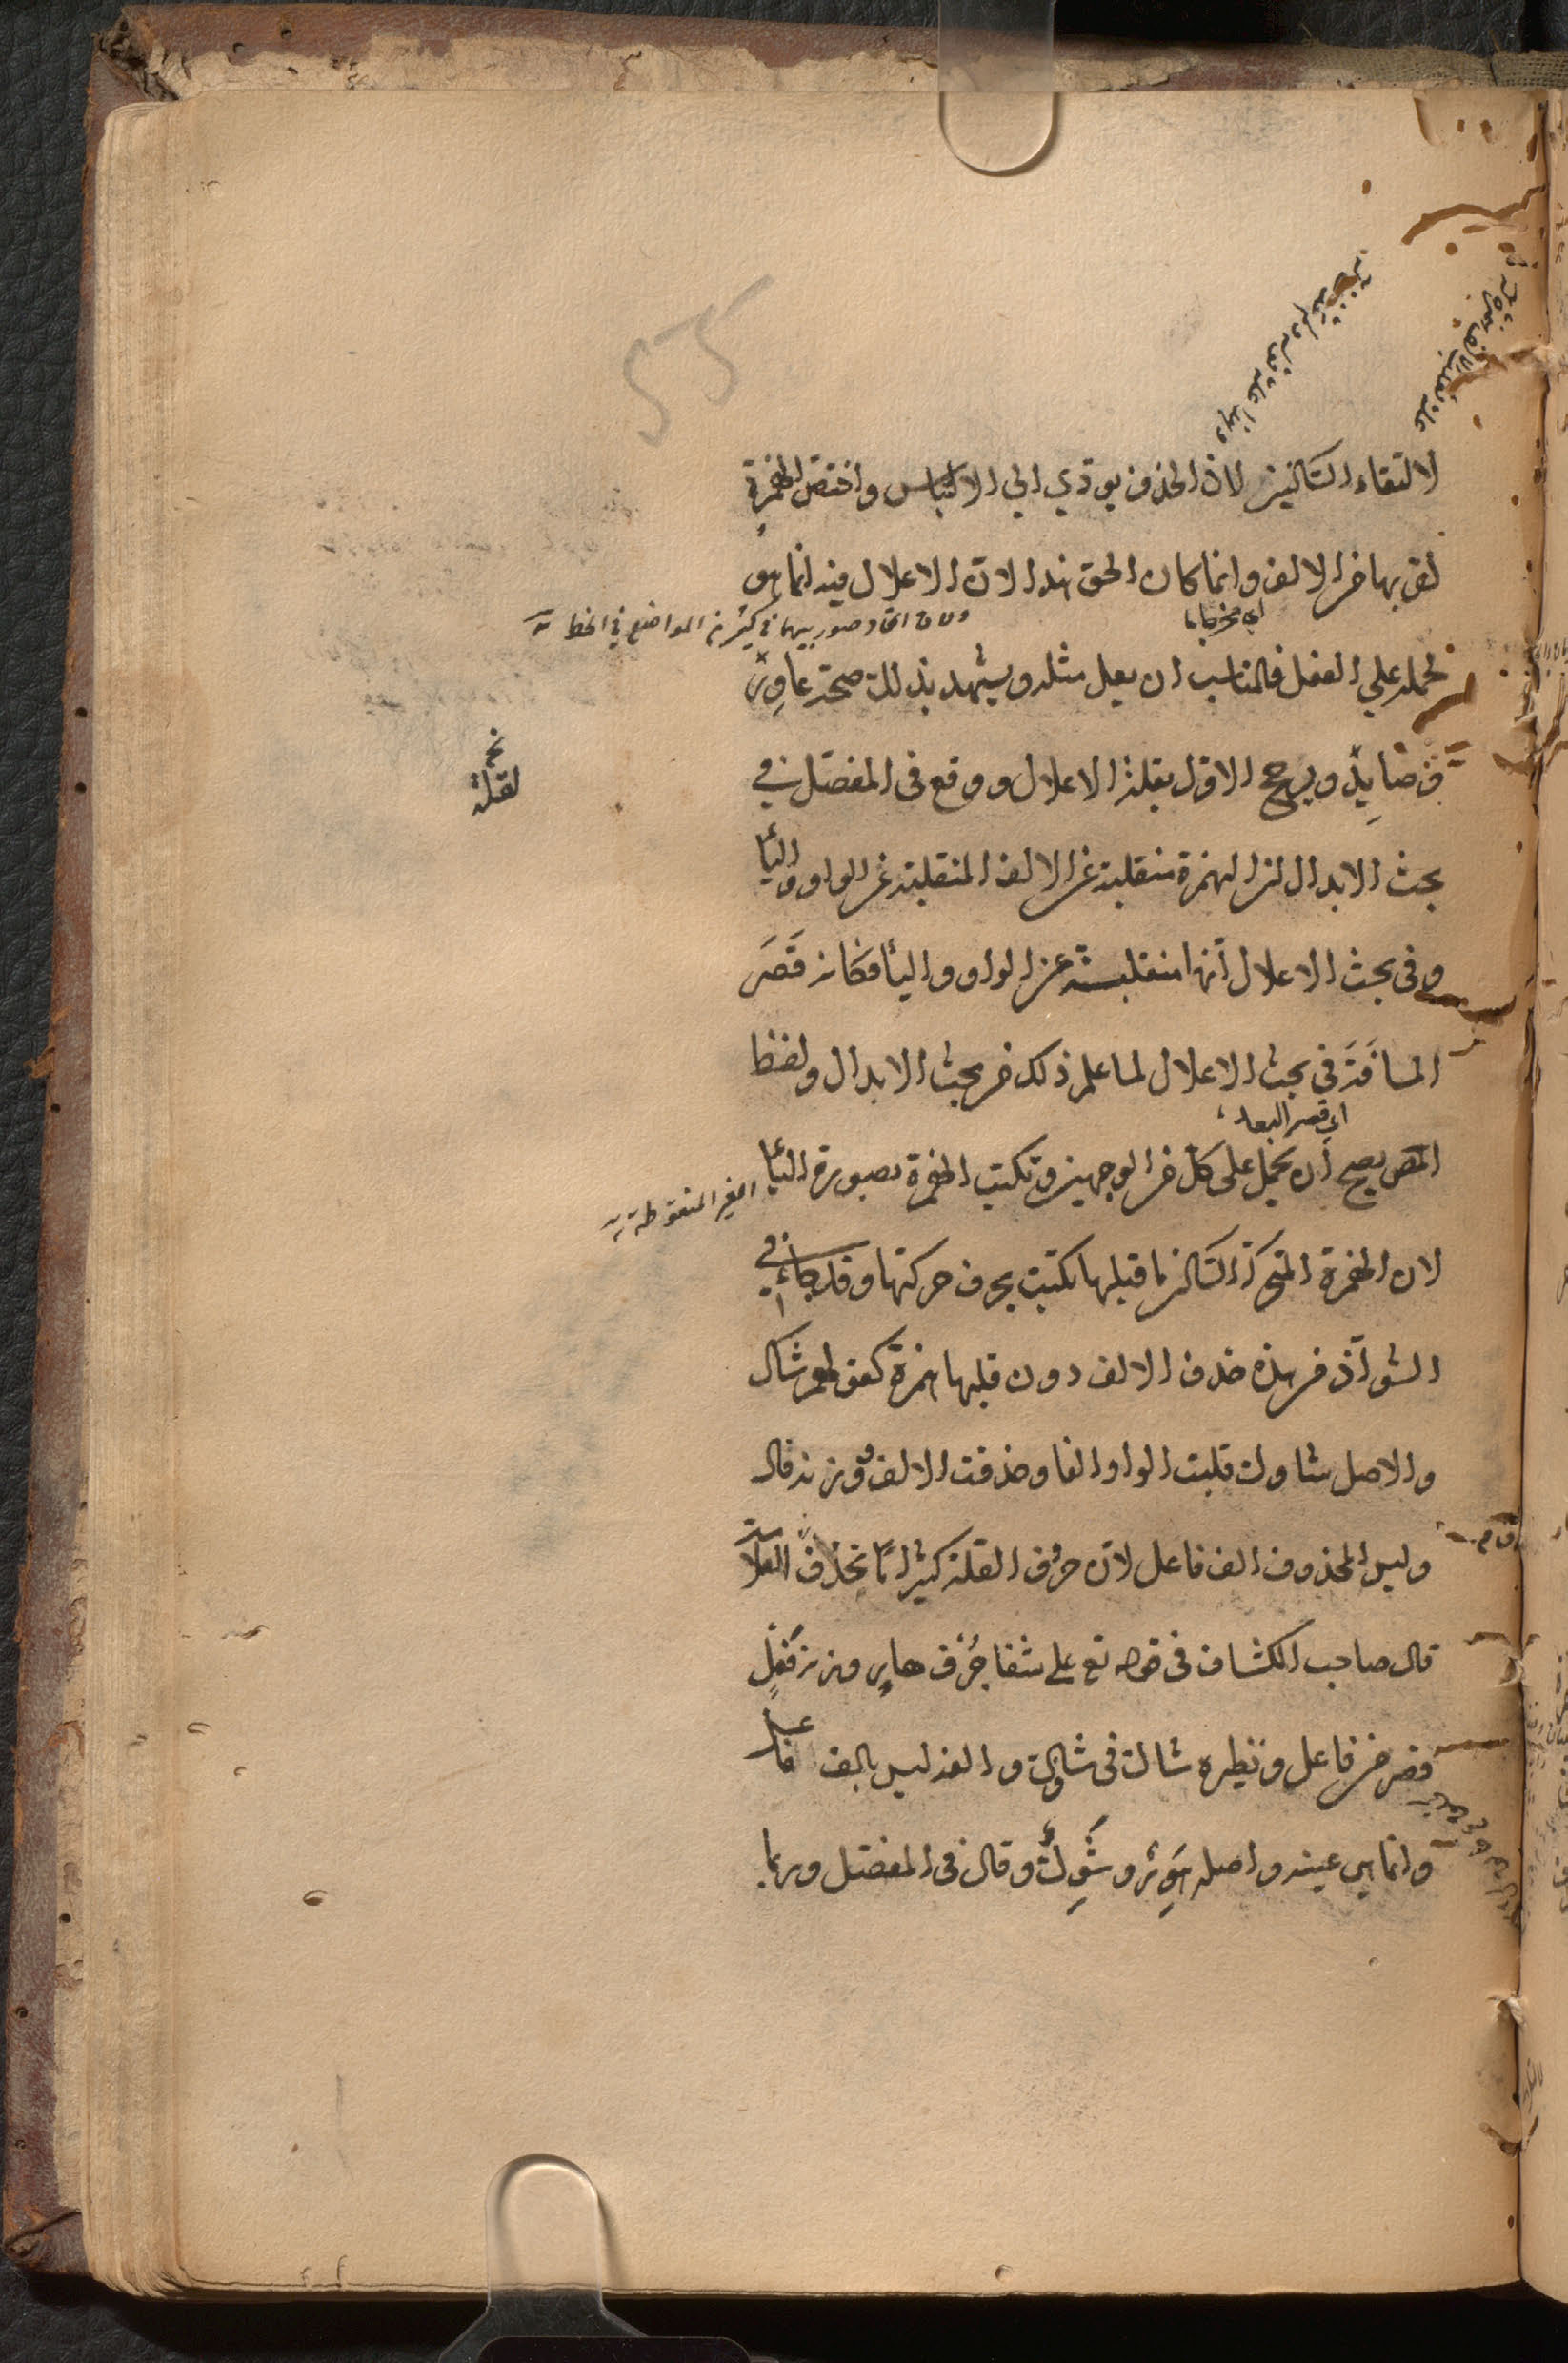 لالتقاء الساكنين لان الحذف يؤدي الي الالتباس واختص الهمزة
لقربها من الالف وانما كان الحق هذا لان الاعلال فيه انما هو
اي مخرجا
ولان اتحاد صورتيهما في كثير من المواضع في الخط
لحمله علي الفعل فالمناسب ان يعل مثله ويشهد بذلك صحة عاوِر
و صَايِد ويرجح الاول بقلة الاعلال ووقع في المفصل في
نخـ لقلة
بحث الابدال ان الهمزة منقلبة عن الالف المنقلبة عن الواو والياء
وفي بحث الاعلال انها منقلبة عن الواو والياء فكانه قَصَر
المسافَةَ في بحث الاعلال لما علم ذلك من بحث الابدال ولفظ
اي قصر البعد
المص يصح ان يحمل على كل من الوجهين وتكتب الهمزة بصورة الياء
الغير المنقوطة
لان الهمزة المتحركة الساكن ما قبلها تكتب بحرف حركتها وقد جاء في
الشواذ من هذه حذف الالف دون قلبها همزة كقولهم شاك
والاصل شاوك قلبت الواو الفا وحذفت الالف ووزنه فال
وليس المحذوف الف فاعل لان حروف العلة كثيرا ما تحذف العلامة
قال صاحب الكشاف في قوله تع علي شفا جُرُف هارٍ وزنه فَعِلٌ
قصر من فاعل ونظيره شاك في شاوك والفه ليس بالف فاعل
وانما هي عينه واصله هَوِر وشَوِكٌ وقال في المفصل وربما